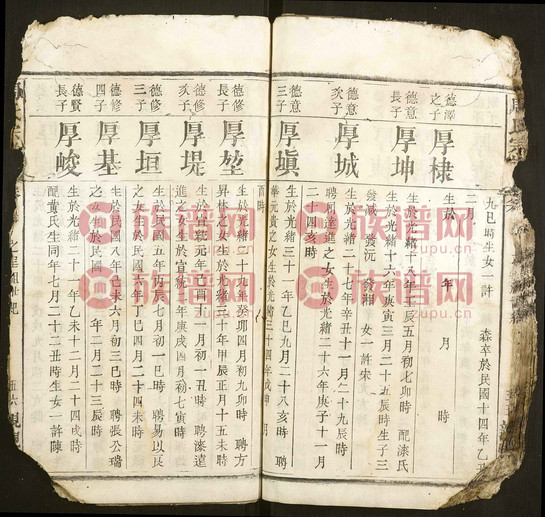 九巳時生女一許 森卒於民國十四年乙丑
二月
德澤之子 厚棣 生於 年 月 時
德意長子 厚坤 生於光緒十八年壬辰五月初七卯時 配漆氏
生於光緒十六年庚寅三月二十五辰時生子三
發咸 發沅 發湘 女一許宋
德意次子 厚城 生於光緒二十七年辛丑十一月二十九辰時
聘利達進之女生於光緒二十六年庚子十一月
二十四亥時
德意三子 厚塡 生於光緒三十一年乙巳九月二十八亥時 聘
華元貴之女生於光緒三十四年戊申 月
酉時
德修長子 厚堃 生於光緒二十九年癸卯四月初九卯時 聘方
昇林之女生於光緒三十年甲辰正月十五未時
德修次子 厚堤 生於宣統元年己酉十一月初一丑時 聘漆達
進之女生於宣統二年庚戌四月初七寅時
德修三子 厚垣 生於民國五年丙辰七月初一巳時 聘易以良
之女生於民國六年丁巳四月二十四未時
德修四子 厚基 生於民國八年己未六月初三巳時 聘張公瑞
之女生於民國 年二月二十三辰時
德賢長子 厚峻 生於光緒二十一年乙未十二月二十四戌時
配黃氏生同年七月二十二丑時生女一許陳
五六
族谱网
zupu.cn